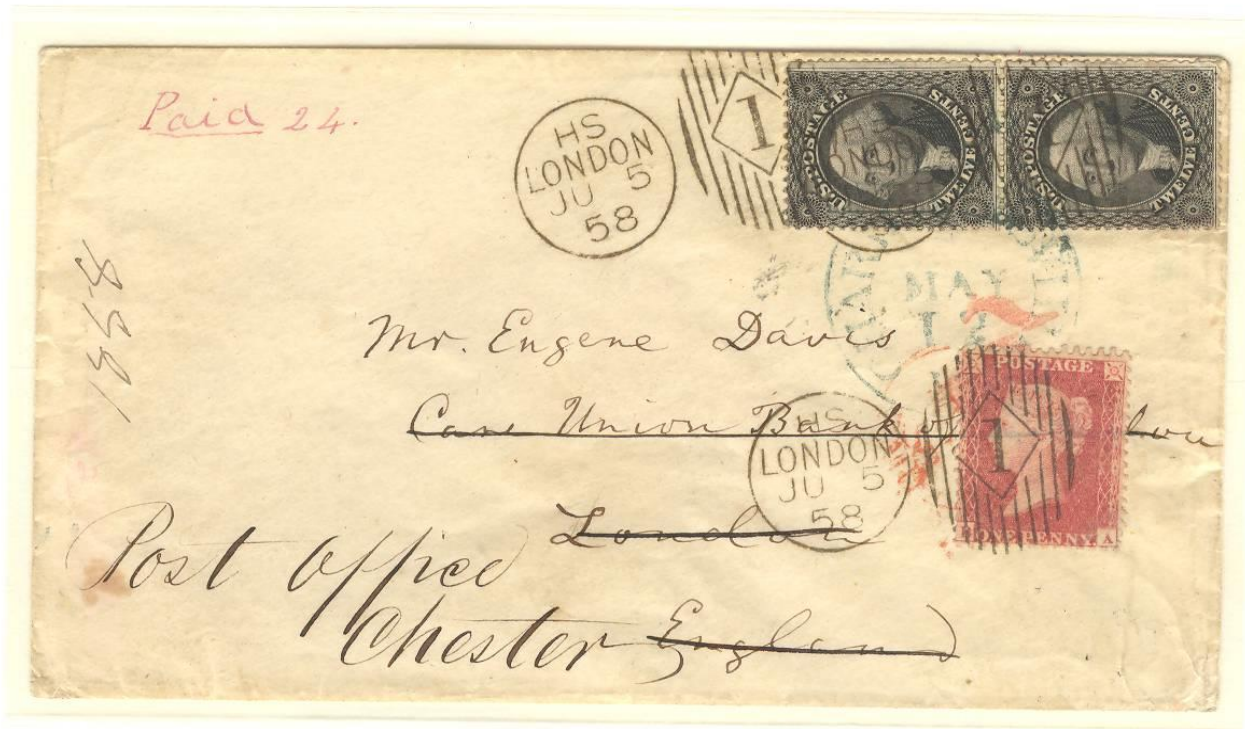 Paid 24.
HS
LONDON
JU 5
58
1
U.S. POSTAGE
TWELVE CENTS
U.S. POSTAGE
TWELVE CENTS
HS
LONDON
MAY
1858
Mr. Eugene Davis
Care Union Bank of
London
HS
LONDON
JU 5
58
POSTAGE
1
ONE PENNY
A
Post Office
Chester England